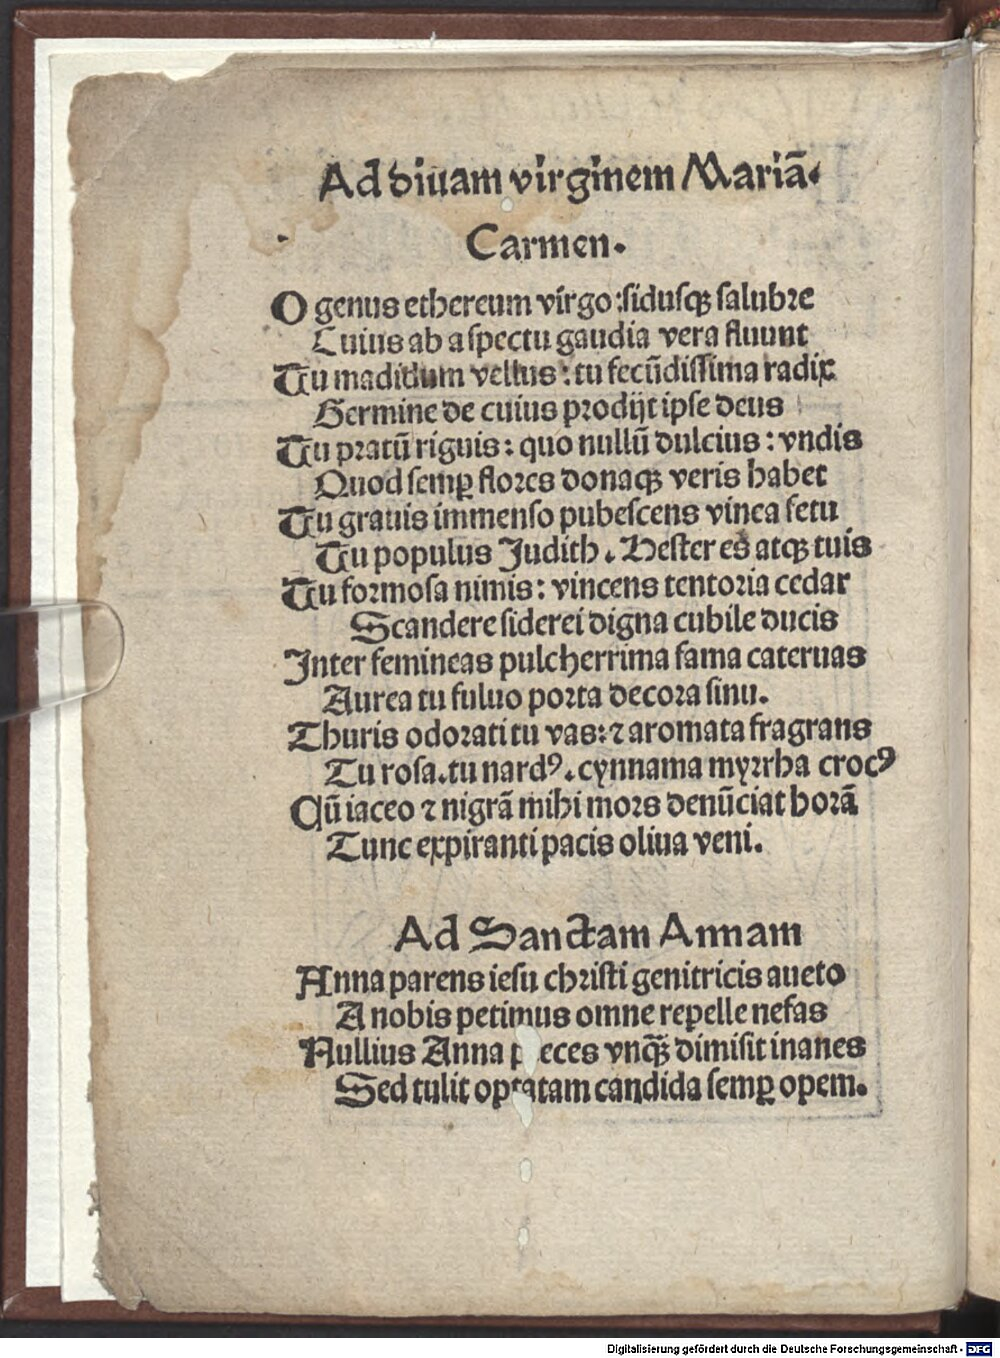 Ad diuam virginem Mariā.
Carmen.
O genus ethereum virgo :sidusqꝫ salubre
Cuius ab aspectu gaudia vera fluunt
Tu madidum vellus : tu fecūdissima radix
Germine de cuius prodijt ipse deus
Tu pratū riguis : quo nullū dulcius : vndis
Quod semꝑ flores donaqꝫ veris habet
Tu grauis immenso pubescens vinea fetu
Tu populus Judith . Hester es atqꝫ tuis
Tu formosa nimis : vincens tentoria cedar
Scandere siderei digna cubile ducis
Inter femineas pulcherrima fama cateruas
Aurea tu fuluo porta decora sinu.
Thuris odorati tu vas: ⁊ aromata fragrans
Tu rosa. tu nardꝰ. cynnama myrrha crocꝰ
Cū iaceo ⁊ nigrā mihi mors denūciat horā
Tunc expiranti pacis oliua veni.
Ad Sanctam Annam
Anna parens iesu christi genitricis aueto
A nobis petimus omne repelle nefas
Nullius Anna p eces vnqꝫ̄ dimisit inanes
Sed tulit optatam candida semꝑ opem.
Digitalisierung gefördert durch die Deutsche Forschungsgemeinschaft - DFG